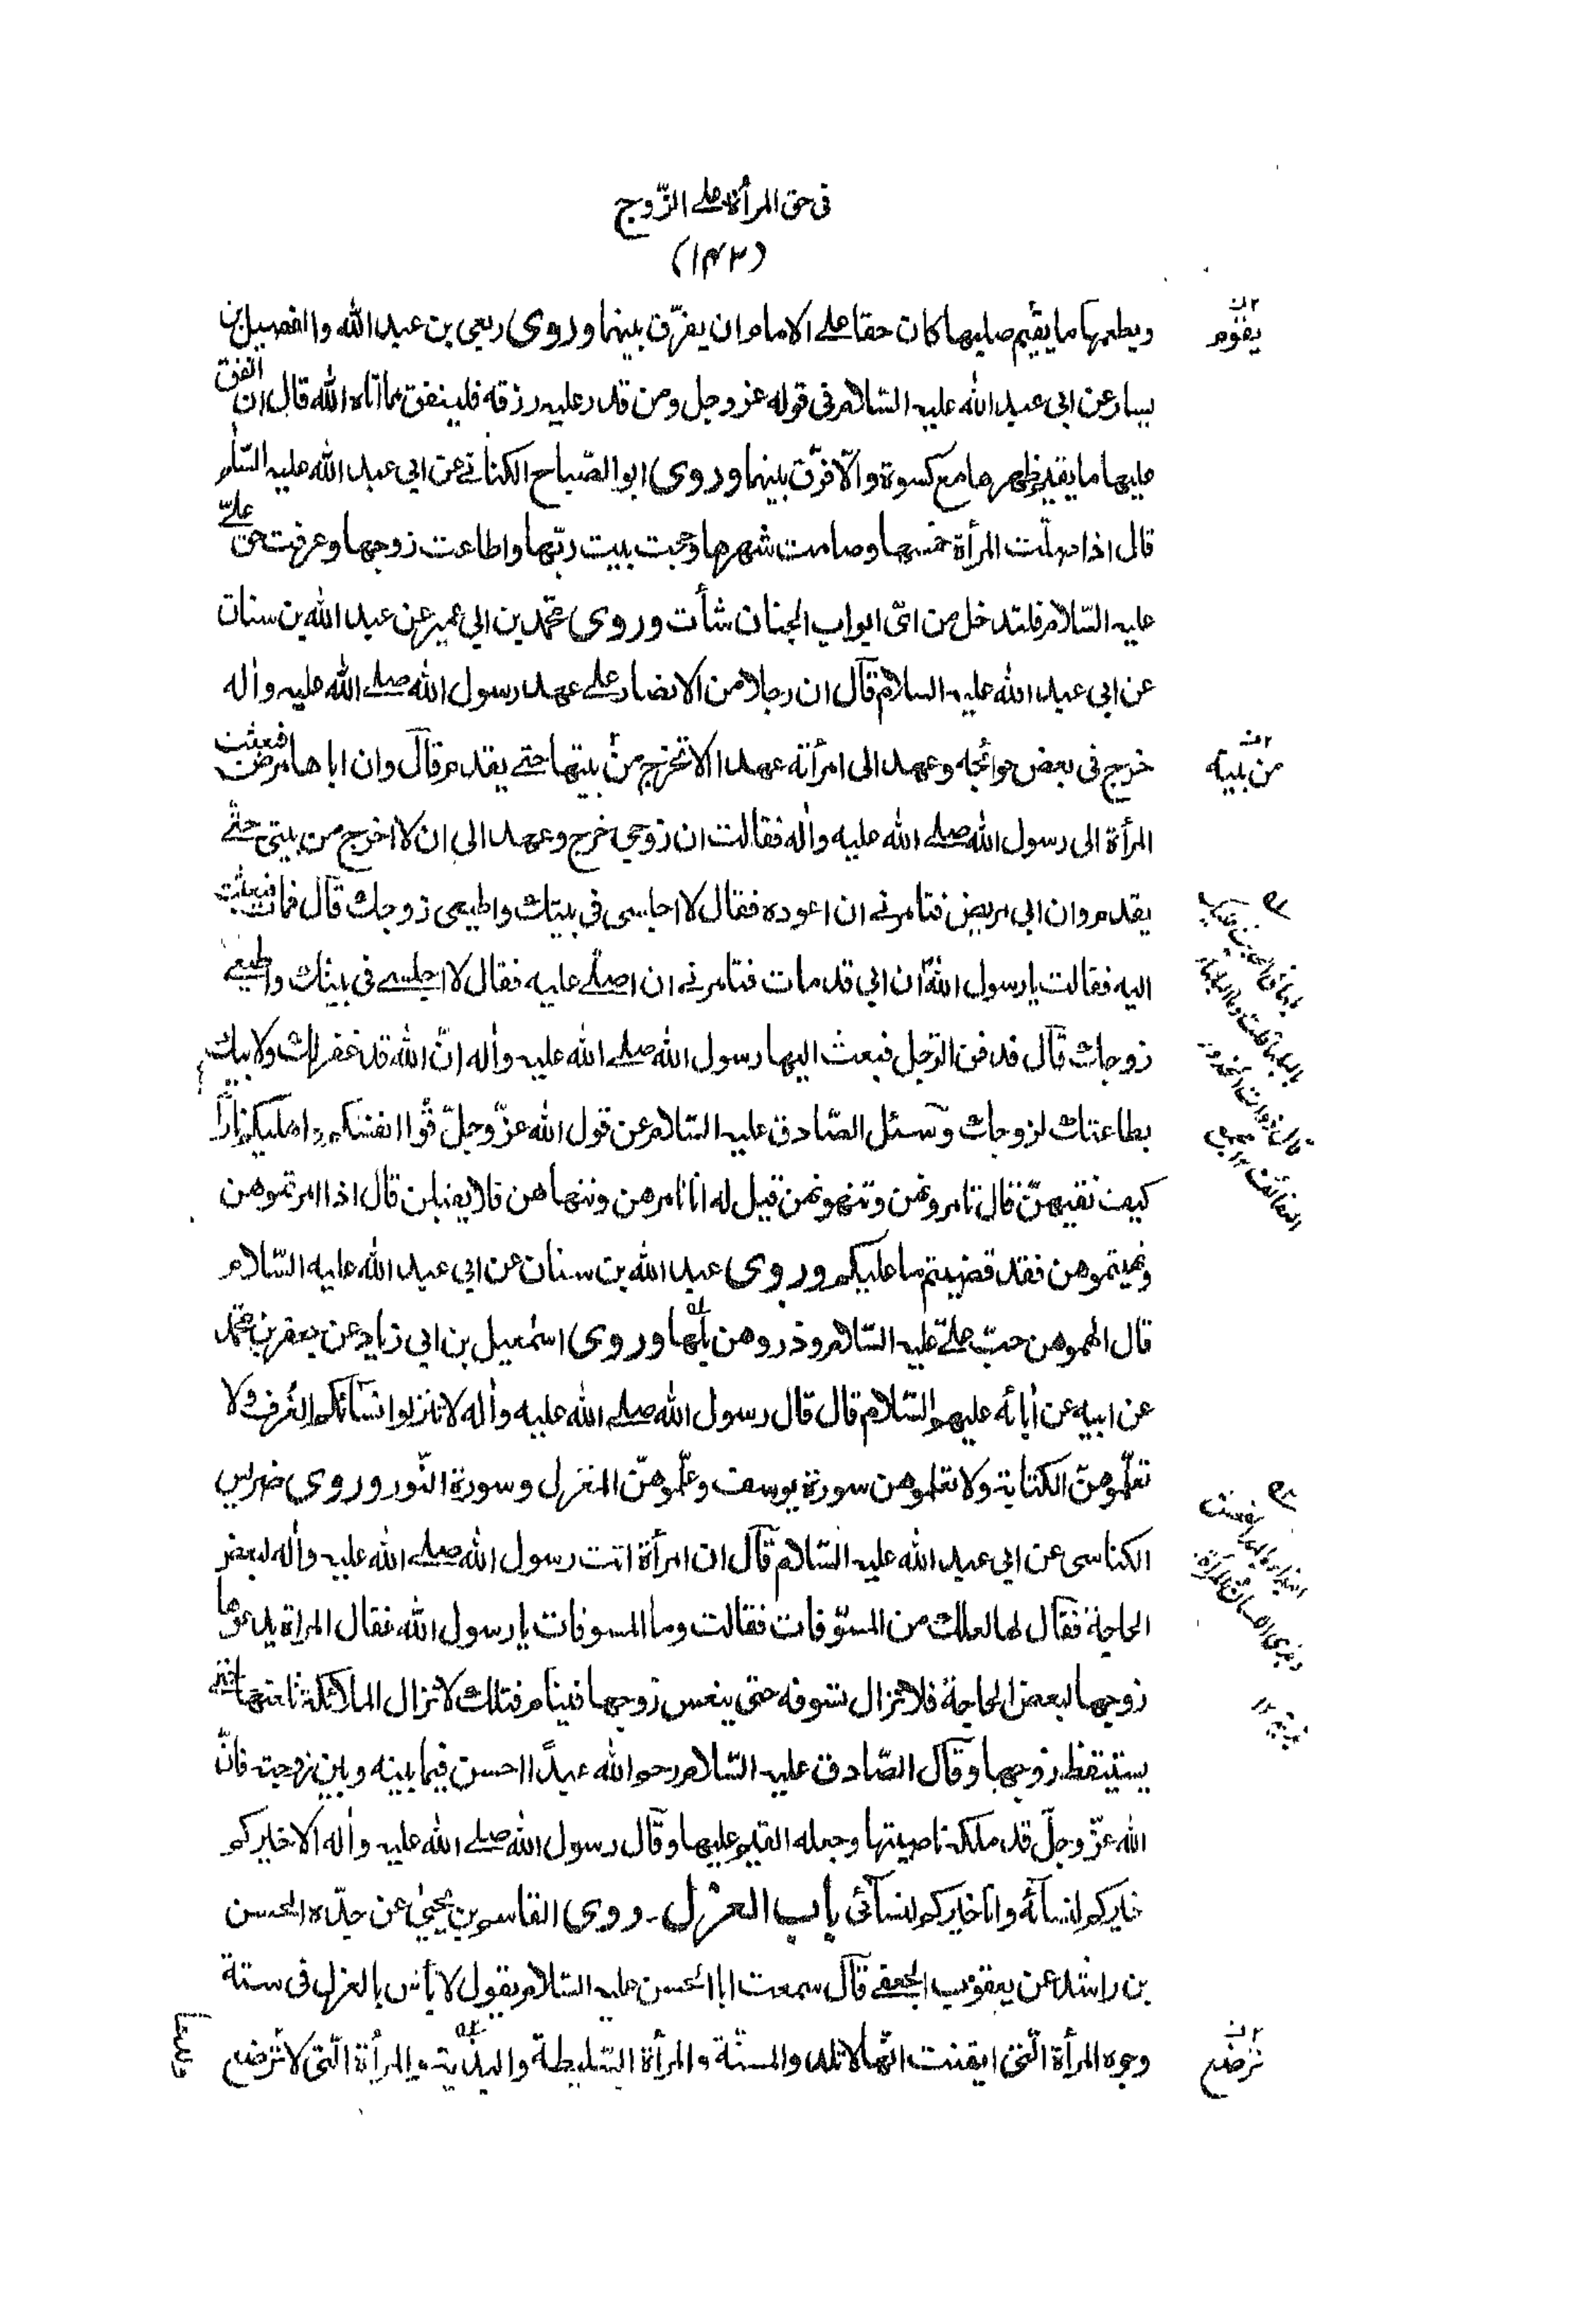 فی حق المرأة علے الزّوج
(۱۴۲)
ویطعمها ما یقیم صلبها کان حقا علے الامام ان یفرّق بینهما وروی ربعی بن عبد الله والفضیل بن
یسار عن ابی عبد الله علیه السّلام فی قوله عز وجل ومن قدر علیه رزقه فلینفق مما اٰتاه الله قال ان انفق
علیها ما یقیم ظهرها مع کسوة والّا فرّق بینهما وروی ابو الصّباح الکنانے عن ابی عبد الله علیه السّلٰم
قال اذا صلّت المرأة خمسها وصامت شهرها وحجّت بیت ربّها واطاعت زوجها وعرفت حق علیّ
علیه السّلام فلتدخل من ایّ ابواب الجنان شأت وروی محمّد بن ابی عمیر عن عبد الله بن سنان
عن ابی عبد الله علیه السلام قال ان رجلا من الانصار علے عهد رسول الله صلے الله علیه واٰله
خرج فی بعض حوائجه وعهد الی امرأته عهدا الا تخرج من بیتها حتے یقدم قال وان اباها مرض فبعثت
المرأة الی رسول الله صلے الله علیه واٰله فقالت ان زوجی خرج وعهد الی ان لا اخرج من بیتی حتّے
یقدم وان ابی مریض فتامرنے ان اعوده فقال لا اجلسی فی بیتک واطیعی زوجک قال فمات فبعثت
الیه فقالت یا رسول الله ان ابی قد مات فتامرنے ان اصلّے علیه فقال لا اجلسے فی بیتک واطیعے
زوجک قال فدفن الرّجل فبعث الیها رسول الله صلے الله علیه واٰله انّ الله قد غفر لک ولابیک
بطاعتک لزوجک وسئل الصّادق علیه السّلام عن قول الله عزّ وجلّ قُوا انفسکم واهلیکم نارًا
کیف نقیهنّ قال تامرونهن وتنهونهن قیل له انا نامرهن وننهاهن فلا یقبلن قال اذا امرتموهن
ونهیتموهن فقد قضیتم ما علیکم وروی عبد الله بن سنان عن ابی عبد الله علیه السّلام
قال الهموهن حبّ علےّ علیه السّلام وذروهن بلها وروی اسمٰعیل بن ابی زیاد عن جعفر بن محمّد
عن ابیه عن اٰبائه علیهم السّلام قال قال رسول الله صلے الله علیه واٰله لا تنزلوا نسآئکم الغُرف ولا
تعلّموهنّ الکتابة ولا تعلموهن سورة یوسف وعلّموهنّ المغزل وسورة النّور وروی ضریس
الکناسی عن ابی عبد الله علیه السّلام قال ان امرأة اتت رسول الله صلے الله علیه واٰله لبعض
الحاجة فقال لها لعلک من المسوّفات فقالت وما المسوفات یا رسول الله فقال المراة یدعوها
زوجها لبعض الحاجة فلا تزال تسوفه حتی ینعس زوجها فینام فتلک لا تزال الملائکة تلعنها حتے
یستیقظ زوجها وقال الصّادق علیه السّلام رحم الله عبدًا احسن فیما بینه وبین زوجته فانّ
الله عزّ وجلّ قد ملکه ناصیتها وجعله القیم علیها وقال رسول الله صلے الله علیه واٰله الا خیرکم
خیرکم لنسآئه وانا خیرکم لنسآئی باب العزل۔ روی القاسم بن یحییٰ عن جدّه الحسن
بن راشد عن یعقوب الجعفے قال سمعت ابا الحسن علیه السّلام یقول لا بأس بالعزل فی ستة
وجوه المرأة الّتی ایقنت انّها لا تلد والمسنّة والمرأة السّلیطة والبذیّة والمرأة الّتی لا ترضع
یقوم
من بیته
ترضع